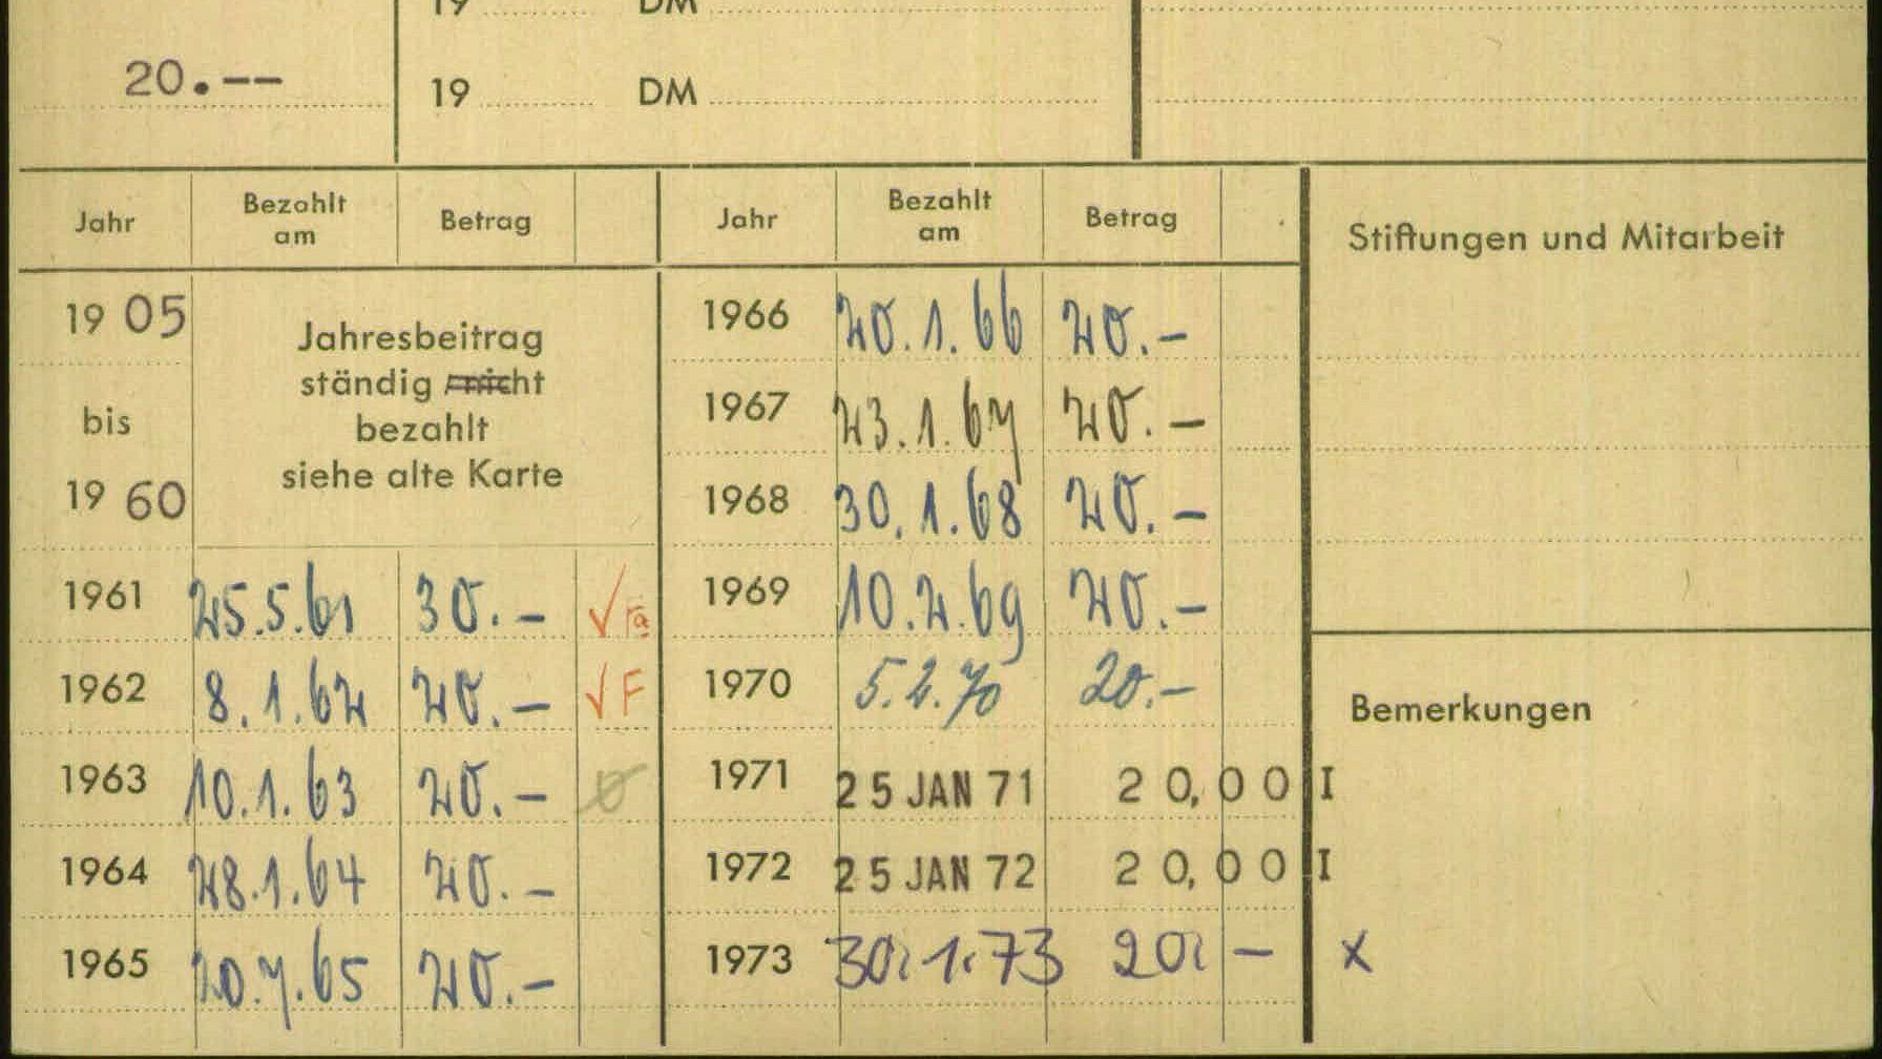 19 DM
20.-- 19 DM
Jahr Bezahlt am Betrag Jahr Bezahlt am Betrag Stiftungen und Mitarbeit
19 05
bis
19 60
Jahresbeitrag
ständig nicht
bezahlt
siehe alte Karte
1961 25.5.61 30.- √ Fa
1962 8.1.62 20.- √ F
1963 10.1.63 20.-
1964 28.1.64 20.-
1965 20.7.65 20.-
1966 20.1.66 20.-
1967 23.1.67 20.-
1968 30.1.68 20.-
1969 10.2.69 20.-
1970 5.2.70 20.-
1971 25 JAN 71 20,00 I
1972 25 JAN 72 20,00 I
1973 30.1.73 20.- x
Bemerkungen